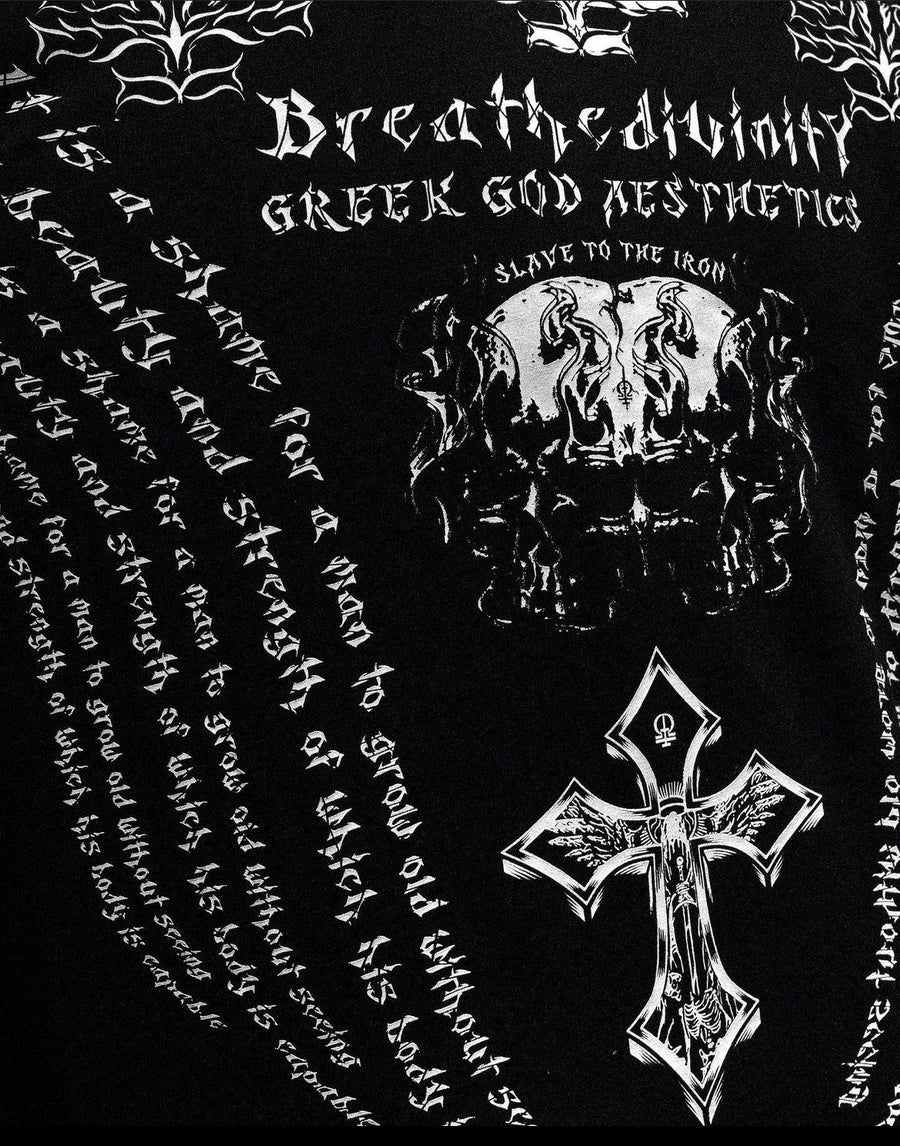 Breathedivinity
GREEK GOD AESTHETICS
SLAVE TO THE IRON
it is a shame for a man to grow old without
beauty and strength of which his body
is a shame for a man to grow old without seeing
beauty and strength of which his body is capable
shame for a man to grow old without seeing
and strength of which his body is capable
for a man
to grow old without seeing